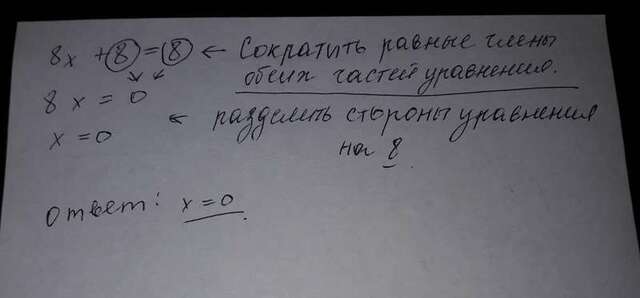 8x + 8 = 8 ← Сократить равные члены
обеих частей уравнения.
8x = 0
← разделить стороны уравнения
x = 0
на 8
ответ: x = 0.